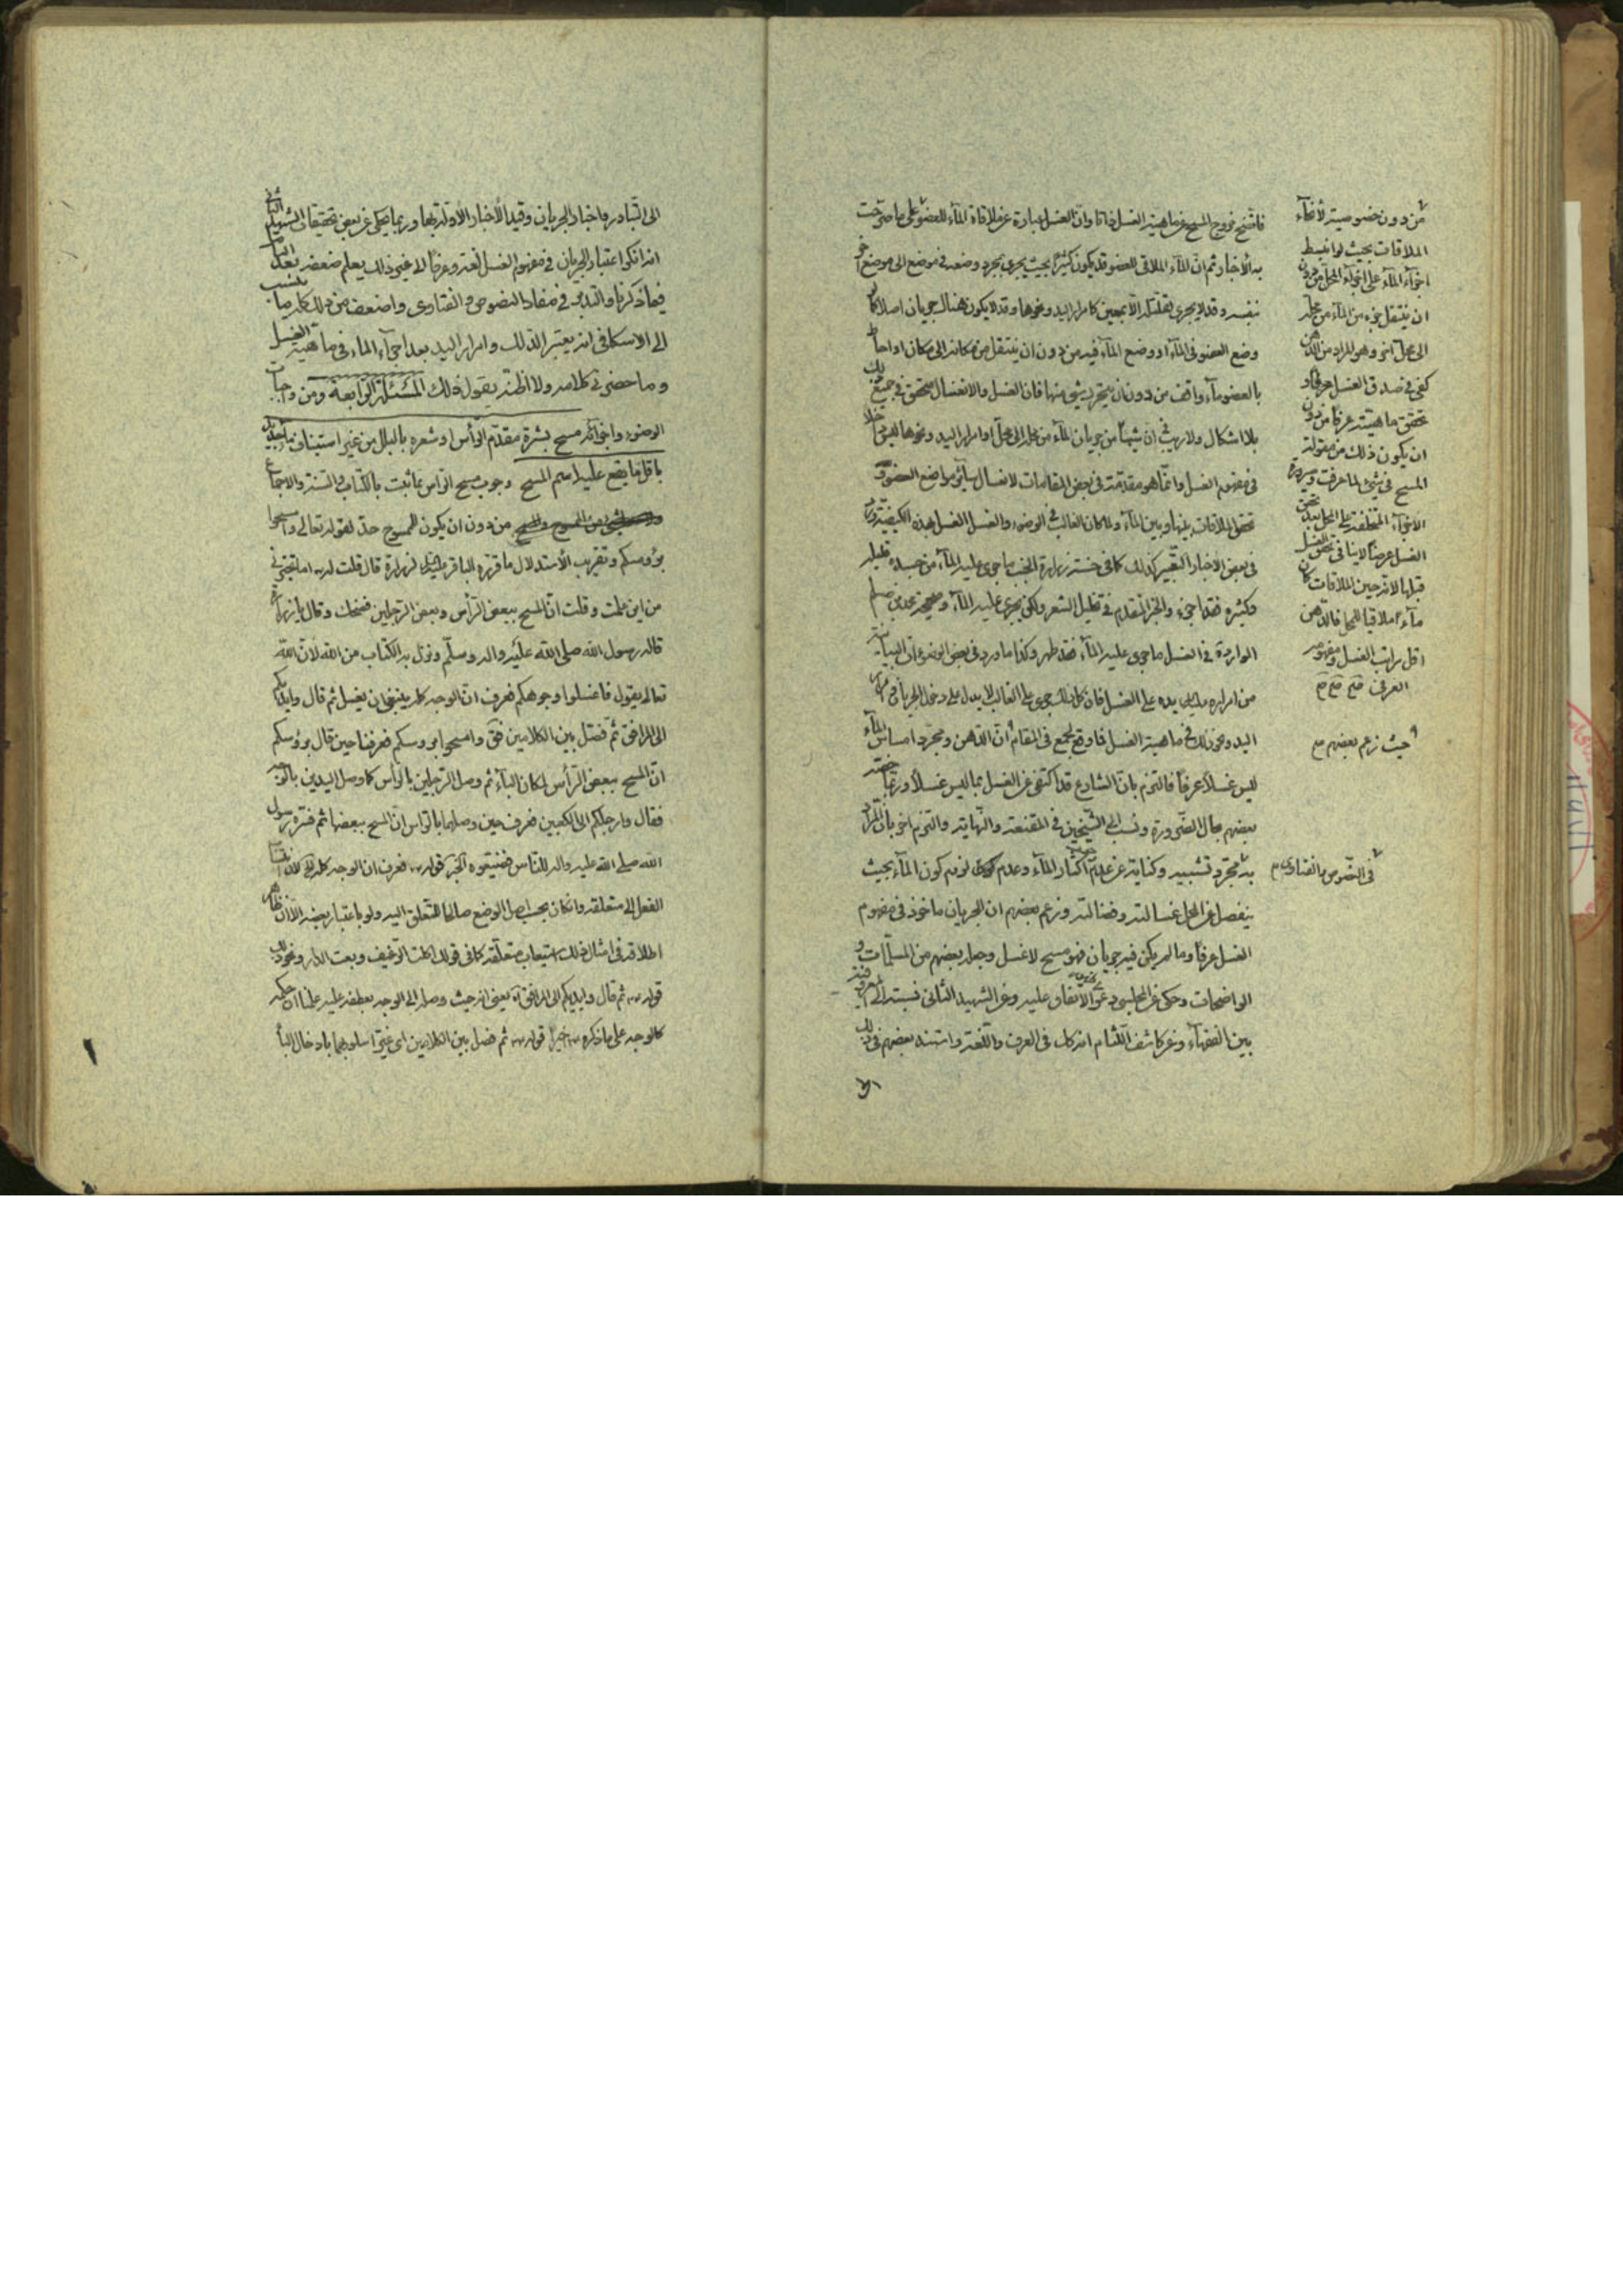 فاتضح خروج المسح عن ماهية الغسل ذاتا وان الغسل عبارة عن ملاقاة المآء للعضو على ما صرحت
به الأخبار ثم ان المآء الملاقى للعضو قد يكون كثيرا بحيث يجرى بمجرد وضعه في موضع الى موضع آخر
بنفسه وقد لا يجرى لقلته الا بمعين كامرار اليد ونحوها وقد لا يكون هناك جريان اصلا كما
وضع العضو في المآء او وضع المآء فيه من دون ان ينتقل من مكانه الى مكان او احاط
بالعضو مآء واقف من دون ان يتحرك شيئ منها فان الغسل والانغسال متحقق في جميع ذلك
بلا اشكال ولا ريب في ان شيئا من جريان المآء من محل الى محل او امرار اليد ونحوها ليس داخلا
في مفهوم الغسل وانما هو مقدمة في بعض المقامات لانغسال سائر مواضع العضو و
تحقق الملاقات بينها وبين المآء ولما كان الغالب في الوضوء والغسل الغسل بهذه الكيفية ورد
في بعض الاخبار التعبير كذلك كما في حسنة زرارة الجنب ما جرى عليه المآء من جسده قليله
وكثيره فقد اجزء والخبر المتقدم في تخليل الشعر ولكن يجرى عليه المآء وصحيحة محمد بن مسلم
الواردة في الغسل ما جرى عليه المآء فقد طهر وكذا ما ورد في بعض الوضوءات البيانية
من امراره عليه السلام يده على الغسل فان كل ذلك جرى على الغالب لا يدل على دخل الجريان وامرار
اليد ونحو ذلك في ماهية الغسل فما وقع لجمع في المقام ان الدهن ومجرد امساس المآء
ليس غسلا عرفا فالتزم بان الشارع قد اكتفى عن الغسل بما ليس غسلا وربما خصه
بعضهم بحال الضرورة ونسب الى الشيخين في المقنعة والنهاية والتزم آخر بان المراد
به مجرد تشبيه وكناية عن عدم اكثار المآء وعدم لزوم كون المآء بحيث
ينفصل عن المحل غسالته وفضالته وزعم بعضهم ان الجريان ماخوذ في مفهوم
الغسل عرفا وما لم يكن فيه جريان فهو مسح لا غسل وجعله بعضهم من المسلمات و
الواضحات وحكى عن المجلسى دعوى الاتفاق عليه وعن الشهيد الثانى نسبته الى المعروف
بين الفقهآء وعن كاشف اللثام انه كك في العرف واللغة واستند بعضهم في ذلك
من دون خصوصية لأنحآء
الملاقات بحيث لو انبسط
اجزآء المآء على اجزآء المحل من دون
ان ينتقل جزء من المآء من محله
الى محل آخر وهو المراد من الدهن
كفى في صدق الغسل عرفا و
تحقق ماهيته عرفا من دون
ان يكون ذلك من مقولة
المسح في شئ لما عرفت
الأجزآء المتخلفة على المحل بعد تحقق
الغسل عرضا لا ينافى تحقق الغسل
قبلها لانه حين الملاقات كان
مآء ملاقيا للمحل فالدهن
اقل مراتب الغسل ومفهومه
العرفى صح صح صح
حيث زعم بعضهم صح
في النصوص والفتاوى
الى التبادر واخبار الجريان وقيد الأخبار الأولة بها وربما يحكى عن بعض تحقيقات الشهيد الثاني
انه انكر اعتبار الجريان في مفهوم الغسل لغة وعرفا الى غير ذلك يعلم ضعفه بعد التامل
فيما ذكرنا والتدبر في مفاد النصوص والفتاوى واضعف من ذلك كله ما ينسب
الى الاسكافى انه يعتبر الدلك وامرار اليد بعد اجرآء الماء في ماهية الغسل
وما حضرنى كلامه ولا اظنه يقول ذلك المسئلة الرابعة ومن واجبات
الوضوء واجزآئه مسح بشرة مقدم الرأس او شعره بالبلل من غير استيناف مآء جديد
باقل ما يقع عليه اسم المسح وجوب مسح الرأس مما ثبت بالكتاب والسنة والاجماع
من دون ان يكون للممسوح حد لقوله تعالى وامسحوا
برؤسكم وتقريب الأستدلال ما قرره الباقر عليه السلام لزرارة قال قلت له اما تخبرنى
من اين علمت وقلت ان المسح ببعض الرأس وبعض الرجلين فضحك وقال يا زرارة
قاله رسول الله صلى الله عليه واله وسلم ونزل به الكتاب من الله لأن الله
تعالى يقول فاغسلوا وجوهكم فعرف ان الوجه كله ينبغى ان يغسل ثم قال وايديكم
الى المرافق ثم فصل بين الكلامين فق وامسحوا برؤسكم فعرفنا حين قال برؤسكم
ان المسح ببعض الرأس لمكان البآء ثم وصل الرجلين بالرأس كما وصل اليدين بالوجه
فقال وارجلكم الى الكعبين فعرف حين وصلهما بالرأس ان المسح ببعضها ثم فسره رسول
الله صلى الله عليه واله للناس فضيعوه الخبر قوله فعرف ان الوجه كله الخ لأن انتساب
الفعل الى متعلقه وان كان بحسب اصل الوضع صالحا للتعلق اليه ولو باعتبار بعضه الا ان ظاهر
اطلاقه في امثال ذلك استيعاب متعلقه كما في قولك اكلت الرغيف وبعت الدار ونحو ذلك
قوله ثم قال وايديكم الى المرافق اه يعنى انه حيث وصله الى الوجه بعطفه عليه علمنا ان حكمه
كالوجه على ما ذكره اخيرا قوله ثم فصل بين الكلامين اى غير اسلوبهما بادخال البآ